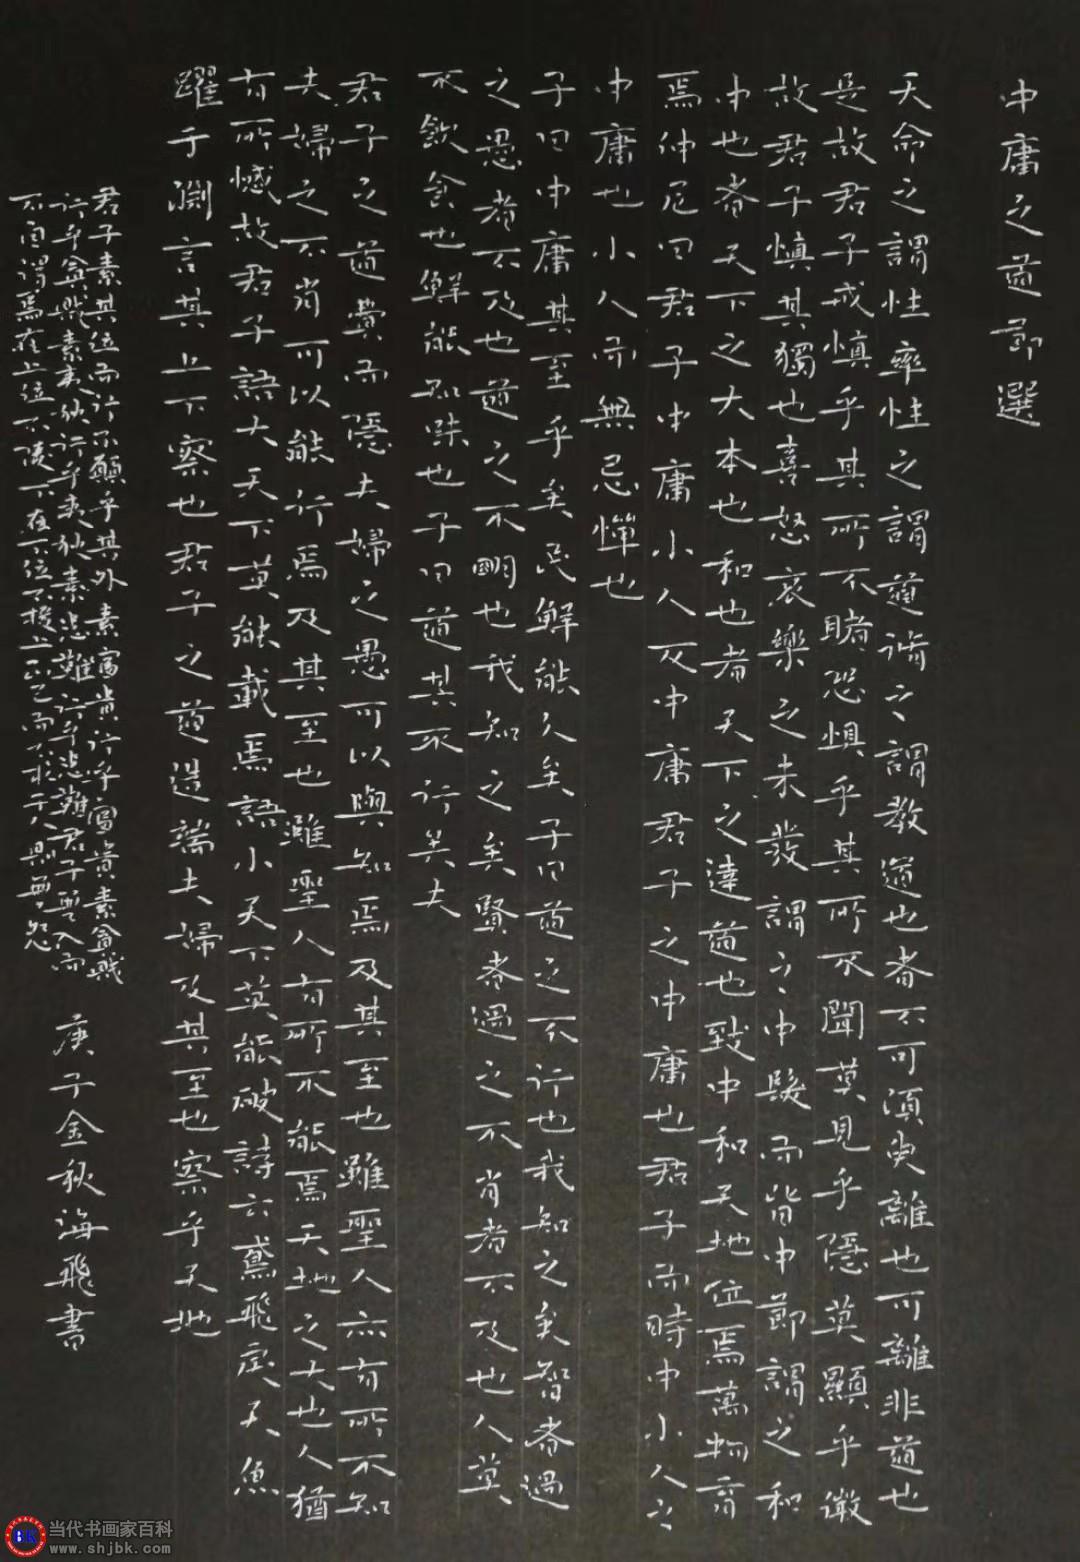 中庸之道節選
天命之謂性率性之謂道脩之謂教道也者不可須臾離也可離非道也
是故君子戒慎乎其所不睹恐懼乎其所不聞莫見乎隱莫顯乎微
故君子慎其獨也喜怒哀樂之未發謂之中發而皆中節謂之和
中也者天下之大本也和也者天下之達道也致中和天地位焉萬物育
焉仲尼曰君子中庸小人反中庸君子之中庸也君子而時中小人之
中庸也小人而無忌憚也
子曰中庸其至乎矣民鮮能久矣子曰道之不行也我知之矣智者過
之愚者不及也道之不明也我知之矣賢者過之不肖者不及也人莫
不飲食也鮮能知味也子曰道其不行矣夫
君子之道費而隱夫婦之愚可以與知焉及其至也雖聖人亦有所不知
夫婦之不肖可以能行焉及其至也雖聖人有所不能焉天地之大也人猶
有所憾故君子語大天下莫能載焉語小天下莫能破詩云鳶飛戾天魚
躍于淵言其上下察也君子之道造端夫婦及其至也察乎天地
君子素其位而行不願乎其外素富貴行乎富貴素貧賤
行乎貧賤素夷狄行乎夷狄素患難行乎患難君子無入而
不自得焉在上位不陵下在下位不援上正己而不求于人則無怨
庚子金秋海飛書
BK
当代书画家百科
www.shjbk.com